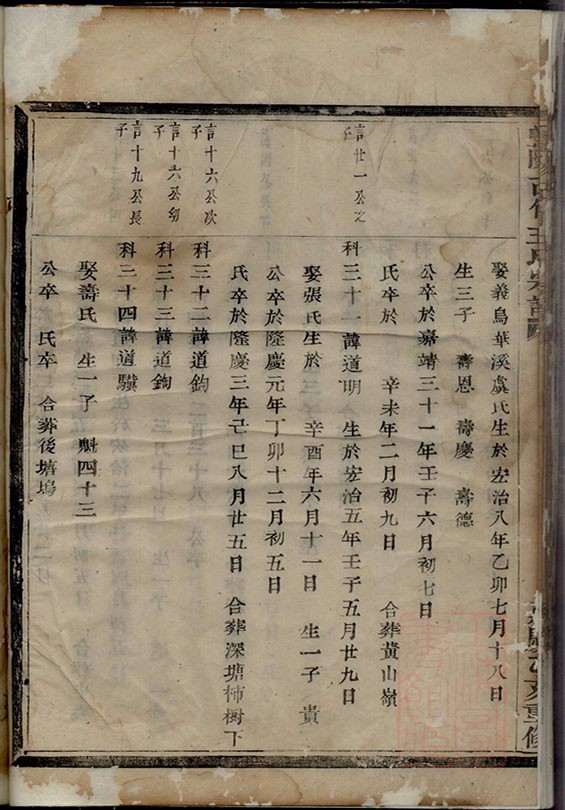 娶義烏華溪虞氏生於宏治八年乙卯七月十八日
生三子 壽恩 壽慶 壽德
公卒於嘉靖三十一年壬子六月初七日
氏卒於 辛未年二月初九日 合葬黃山嶺
言廿一公之子
科三十一諱道明 生於宏治五年壬子五月廿九日
娶張氏生於 辛酉年六月十一日 生一子 貴
公卒於隆慶元年丁卯十二月初五日
氏卒於隆慶三年己巳八月廿五日 合葬深塘柿樹下
言十六公次子
科三十二諱道鈞
言十六公幼子
科三十三諱道鉤
言十九公長子
科三十四諱道驥
娶壽氏 生一子 魁四十三
公卒 氏卒 合葬後塘塢
王氏宗譜
重修